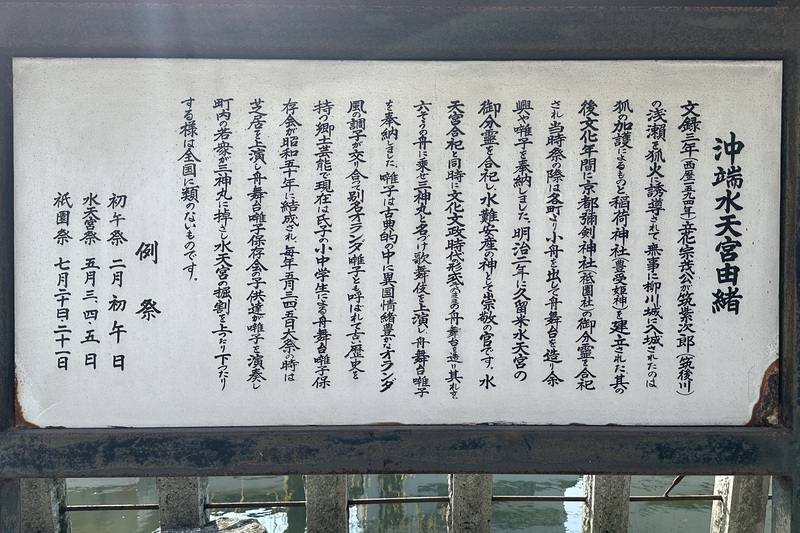 沖端水天宮由緒
文録三年(西歴一五九四年)立花宗茂公が筑紫次郎(筑後川)
の浅瀬を狐火に誘導されて無事に柳川城に入城されたのは
狐の加護によるものと稲荷神社(豊受姫神)を建立された、其の
後文化年間に京都彌剣神社(祇園社)の御分霊を合祀
され当時祭の際は各町より小舟を出して舟舞台を造り余
興や囃子を奉納しました。明治二年に久留米水天宮の
御分霊を合祀し、水難安産の神として崇敬の宮です。水
天宮合祀と同時に文化文政時代形式のまゝの舟舞台を造り其れを、
六そうの舟に乗せ三神丸と名づけ歌舞伎を上演し、舟舞台囃子
を奉納しました。囃子は古典的の中に異国情緒豊かなオランダ
風の調子が交り合って別名オランダ囃子とも呼ばれて古い歴史を
持つ郷土芸能で現在は氏子の小中学生による舟舞台囃子保
存会が昭和五十年に結成され、毎年五月三四五日大祭の時は
芝居を上演し舟舞台囃子保存会の子供達が囃子を演奏し
町内の若衆が三神丸に棹さし水天宮の掘割を上ったり下ったり
する様は全国に類のないものです。
例祭
初午祭 二月初午日
水天宮祭 五月三・四・五日
祇園祭 七月二十日二十一日